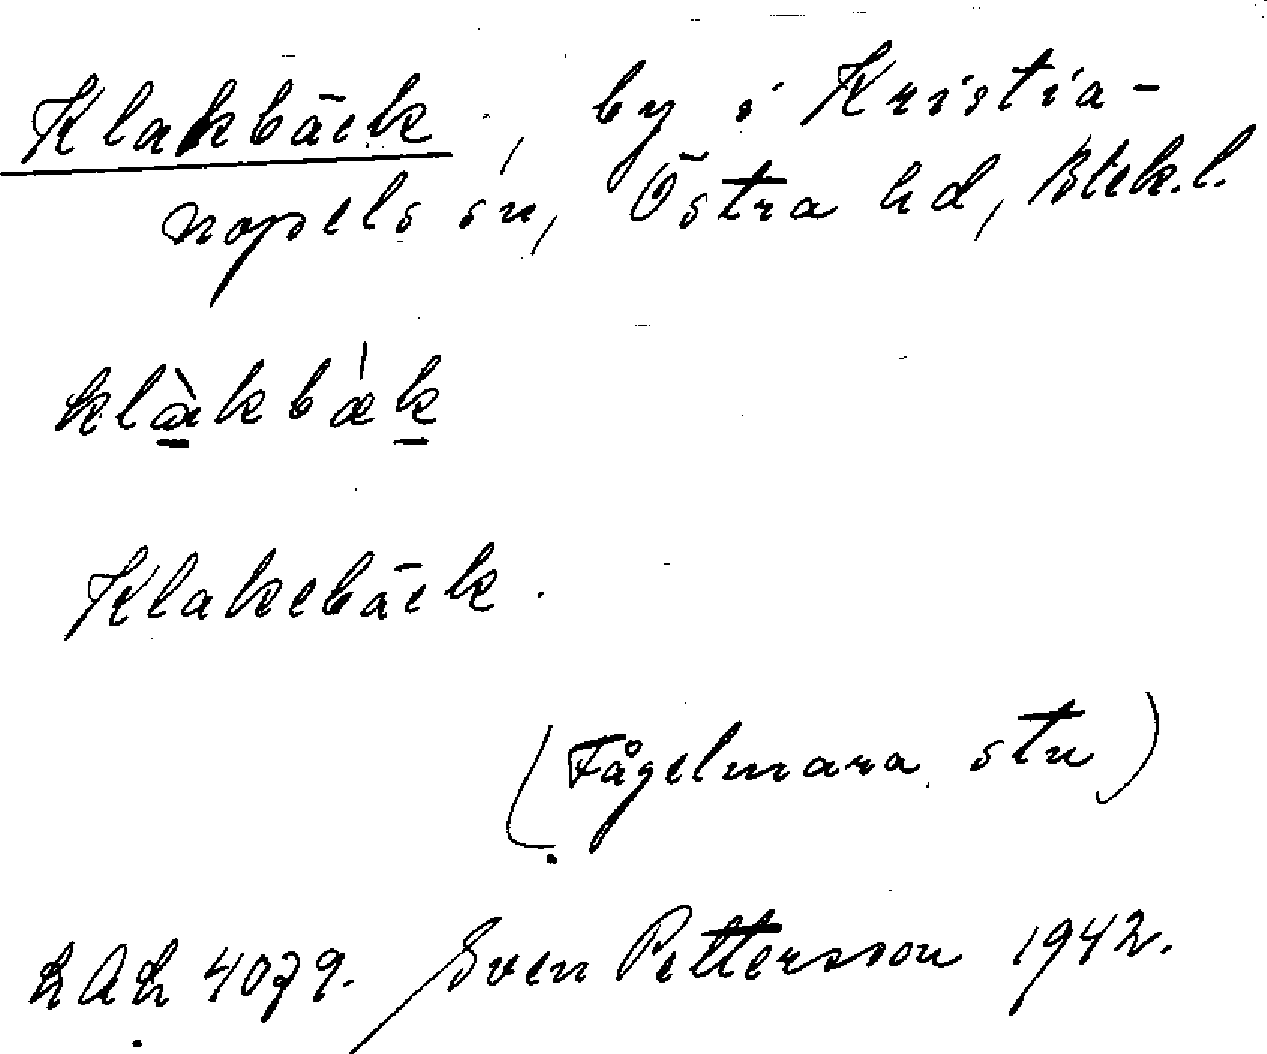 Klakbäck, by i Kristia-
nopels sn, Östra hd, Blek.l.
klàkbæ̍k
Klakebäck.
(Fågelmara stn)
LAL 4079. Sven Pettersson 1942.